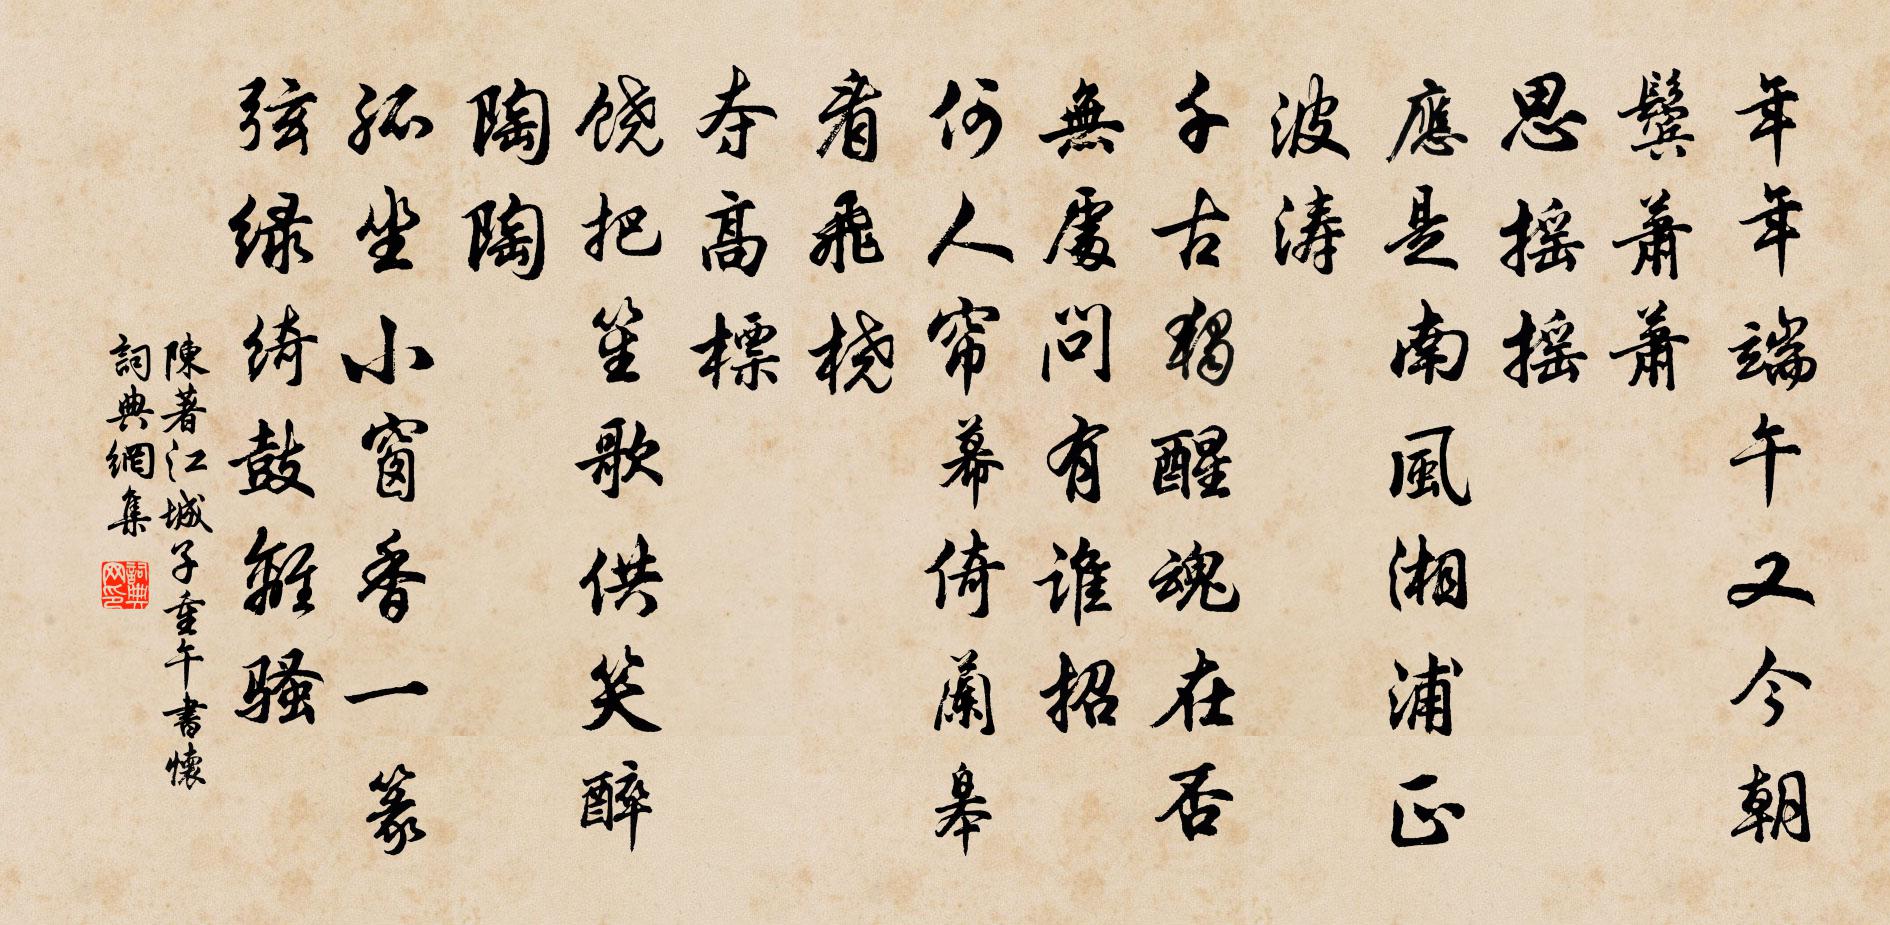 年年端午又今朝
鬢蕭蕭
思摇摇
應是南風湘浦正
波涛
千古獨醒魂在否
無處問有誰招
何人帘幕倚蘭皋
看飛橈
夺高標
饶把笙歌供笑醉
陶陶
孤坐小窗香一篆
弦绿绮鼓離騷
陳著江城子重午書懷
詞典網集
詞典网印